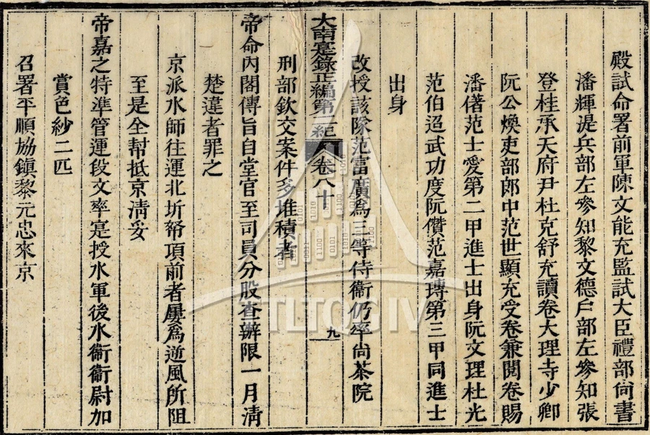 殿試命署前軍陳文能充監試大臣禮部尙書
潘輝湜兵部左參知黎文德戶部左參知張
登桂承天府尹杜克舒充讀卷大理寺少卿
阮公煥吏部郞中范世顯充受卷兼閱卷賜
潘偖范士愛第二甲進士出身阮文理杜光
范伯迢武功度阮儹范嘉第三甲同進士
出身
改授該隊范富廣爲三等侍衛仍率尙茶院
大南寔錄正編第紀 卷八十 九
刑部欽交案件多堆積者
帝命內閣傳旨自堂官至司員分股查辦限一月淸
楚違者罪之
京派水師往運北圻帑項前者屢爲逆風所阻
至是全幫抵京淸妥
帝嘉之特準管運段文率寔授水軍後水衛衛尉加
賞色紗二匹
召署平順協鎭黎元忠來京
TTLTQG IV